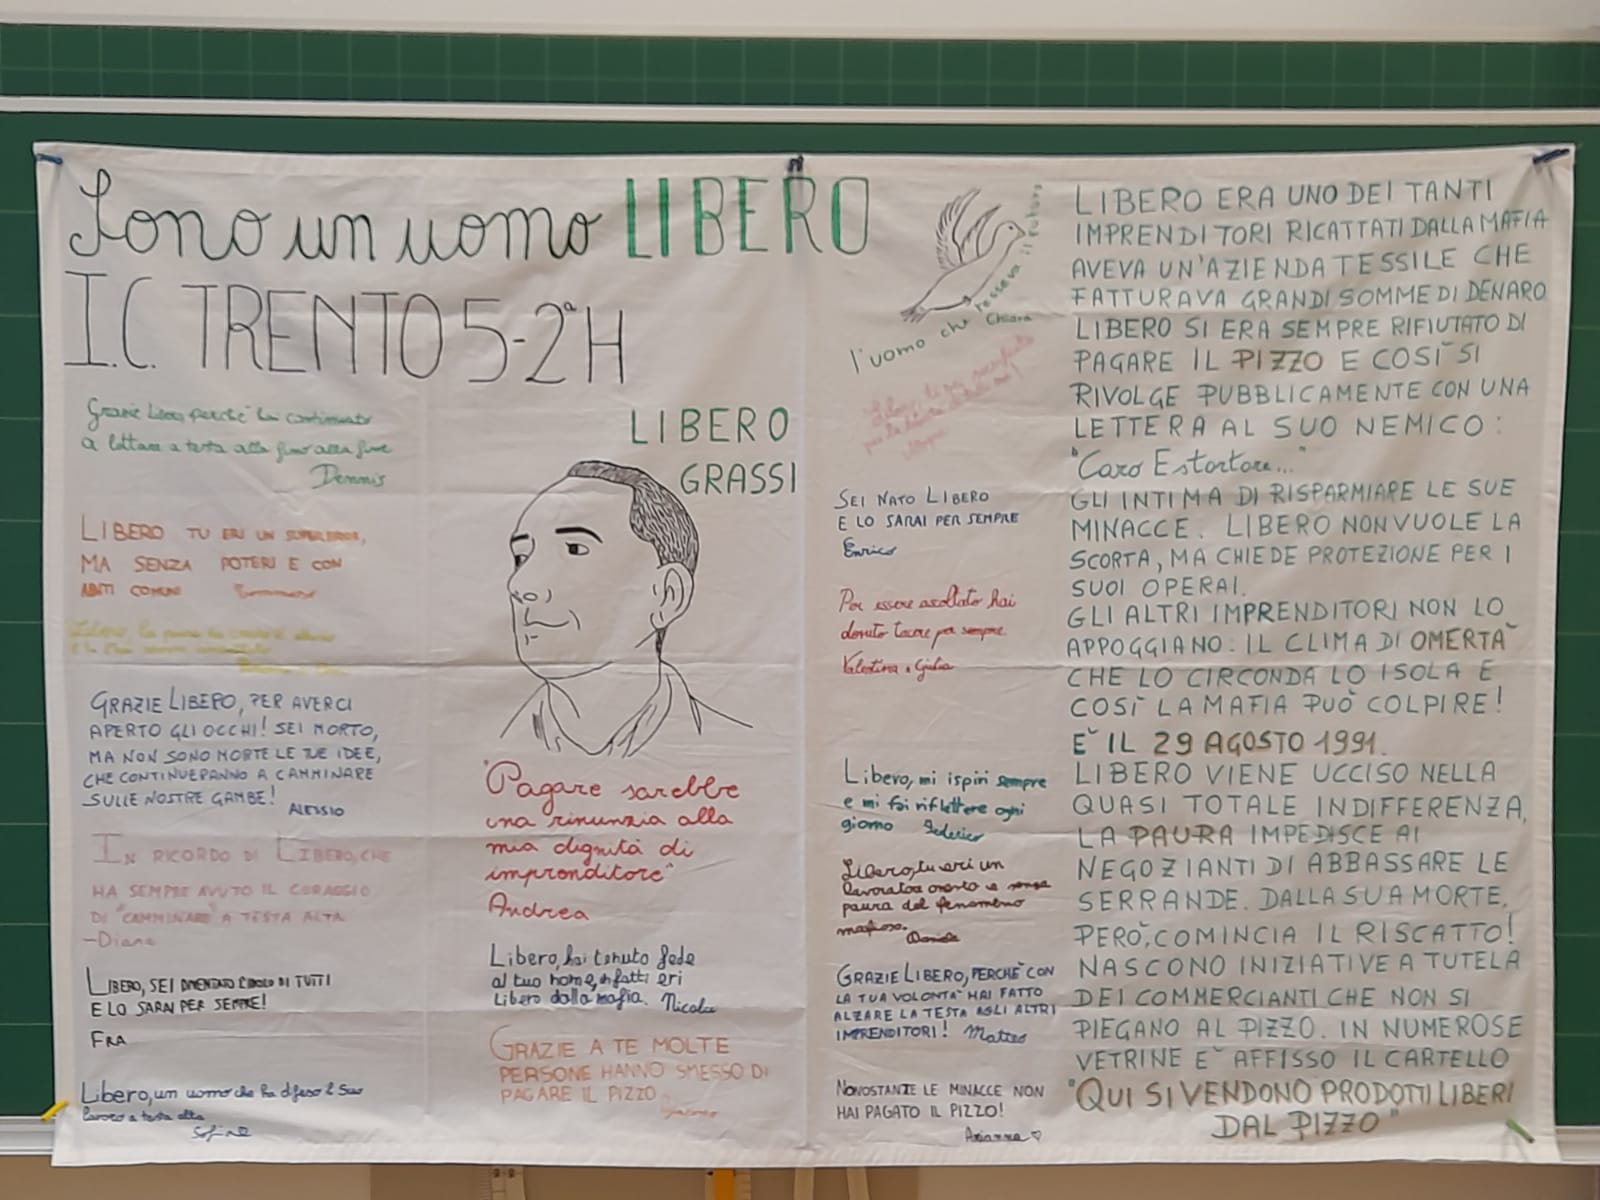 Sono un uomo LIBERO
I.C. TRENTO 5-2ªH
Grazie Libero perchè hai continuato
a lottare a testa alta fino alla fine
Dennis
LIBERO TU ERI UN SUPEREROE,
MA SENZA POTERI E CON
ABITI COMUNI
GRAZIE LIBERO, PER AVERCI
APERTO GLI OCCHI! SEI MORTO,
MA NON SONO MORTE LE TUE IDEE,
CHE CONTINUERANNO A CAMMINARE
SULLE NOSTRE GAMBE!
ALESSIO
IN RICORDO DI LIBERO, CHE
HA SEMPRE AVUTO IL CORAGGIO
DI "CAMMINARE" A TESTA ALTA
-Diana
LIBERO, SEI DIVENTATO L'IDOLO DI TUTTI
E LO SARAI PER SEMPRE!
FRA
Libero, un uomo che ha difeso il suo
lavoro a testa alta
Sofia
LIBERO
GRASSI
"Pagare sarebbe
una rinunzia alla
mia dignità di
imprenditore"
Andrea
Libero, hai tenuto fede
al tuo nome, infatti eri
libero dalla mafia. Nicola
GRAZIE A TE MOLTE
PERSONE HANNO SMESSO DI
PAGARE IL PIZZO
l'uomo che tesseva il futuro
Chiara
SEI NATO LIBERO
E LO SARAI PER SEMPRE
Enrico
Per essere ascoltato hai
dovuto tacere per sempre.
Valentina e Giulia
Libero, mi ispiri sempre
e mi fai riflettere ogni
giorno Federico
Libero, tu eri un
lavoratore onesto e senza
paura del fenomeno
mafioso.
GRAZIE LIBERO, PERCHÈ CON
LA TUA VOLONTÀ HAI FATTO
ALZARE LA TESTA AGLI ALTRI
IMPRENDITORI! Matteo
NONOSTANTE LE MINACCE NON
HAI PAGATO IL PIZZO!
Arianna
LIBERO ERA UNO DEI TANTI
IMPRENDITORI RICATTATI DALLA MAFIA
AVEVA UN'AZIENDA TESSILE CHE
FATTURAVA GRANDI SOMME DI DENARO
LIBERO SI ERA SEMPRE RIFIUTATO DI
PAGARE IL PIZZO E COSÌ SI
RIVOLGE PUBBLICAMENTE CON UNA
LETTERA AL SUO NEMICO:
"Caro Estortore..."
GLI INTIMA DI RISPARMIARE LE SUE
MINACCE. LIBERO NON VUOLE LA
SCORTA, MA CHIEDE PROTEZIONE PER I
SUOI OPERAI.
GLI ALTRI IMPRENDITORI NON LO
APPOGGIANO: IL CLIMA DI OMERTÀ
CHE LO CIRCONDA LO ISOLA E
COSÌ LA MAFIA PUÒ COLPIRE!
E' IL 29 AGOSTO 1991.
LIBERO VIENE UCCISO NELLA
QUASI TOTALE INDIFFERENZA,
LA PAURA IMPEDISCE AI
NEGOZIANTI DI ABBASSARE LE
SERRANDE. DALLA SUA MORTE,
PERÒ, COMINCIA IL RISCATTO!
NASCONO INIZIATIVE A TUTELA
DEI COMMERCIANTI CHE NON SI
PIEGANO AL PIZZO. IN NUMEROSE
VETRINE E' AFFISSO IL CARTELLO
"QUI SI VENDONO PRODOTTI LIBERI
DAL PIZZO"